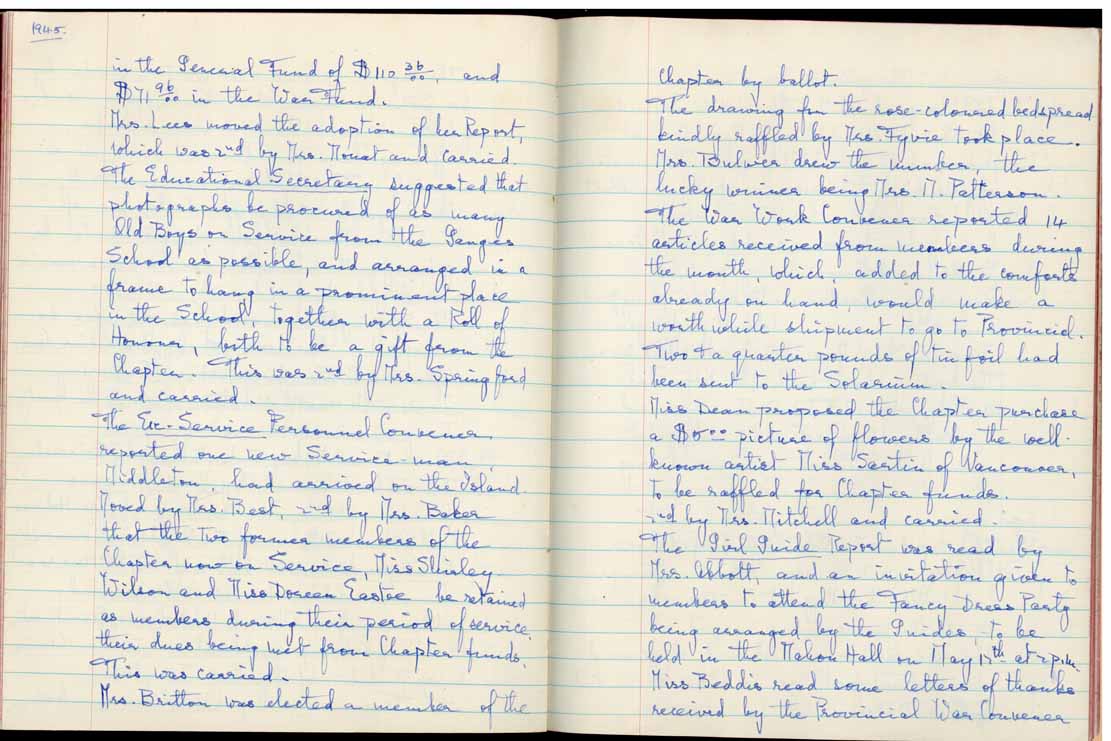 1945.
in the General Fund of $110 36/00, and
$71 96/00 in the War Fund.
Mrs. Lees moved the adoption of her Report,
which was 2nd by Mrs. Mouat and carried.
The Educational Secretary suggested that
photographs be procured of as many
Old Boys on Service from the Ganges
School as possible, and arranged in a
frame to hang in a prominent place
in the School, together with a Roll of
Honour, both to be a gift from the
Chapter. This was 2nd by Mrs. Springford
and carried.
The Ex-Service Personnel Convener
reported one new Service-man,
Middleton, had arrived on the Island.
Moved by Mrs. Best, 2nd by Mrs. Baker
that the two former members of the
Chapter now on Service, Miss Shirley
Wilson and Miss Doreen Eastoe be retained
as members during their period of service,
their dues being met from Chapter funds.
This was carried.
Mrs. Britton was elected a member of the
Chapter by ballot.
The drawing for the rose-coloured bedspread
kindly raffled by Mrs. Fyvie took place.
Mrs. Bulwer drew the number, the
lucky winner being Mrs. M. Patterson.
The War Work Convener reported 14
articles received from members during
the month, which, added to the comforts
already on hand, would make a
worth while shipment to go to Provincial.
Two & a quarter pounds of tin foil had
been sent to the Solarium.
Miss Dean proposed the Chapter purchase
a $5.00 picture of flowers by the well-
known artist Miss of Vancouver,
to be raffled for Chapter funds.
2nd by Mrs. Mitchell and carried.
The Girl Guide Report was read by
Mrs. Abbott, and an invitation given to
members to attend the Fancy Dress Party
being arranged by the Guides, to be
held in the Mahon Hall on May at 2 p.m.
Miss Beddis read some letters of thanks
received by the Provincial War Convener